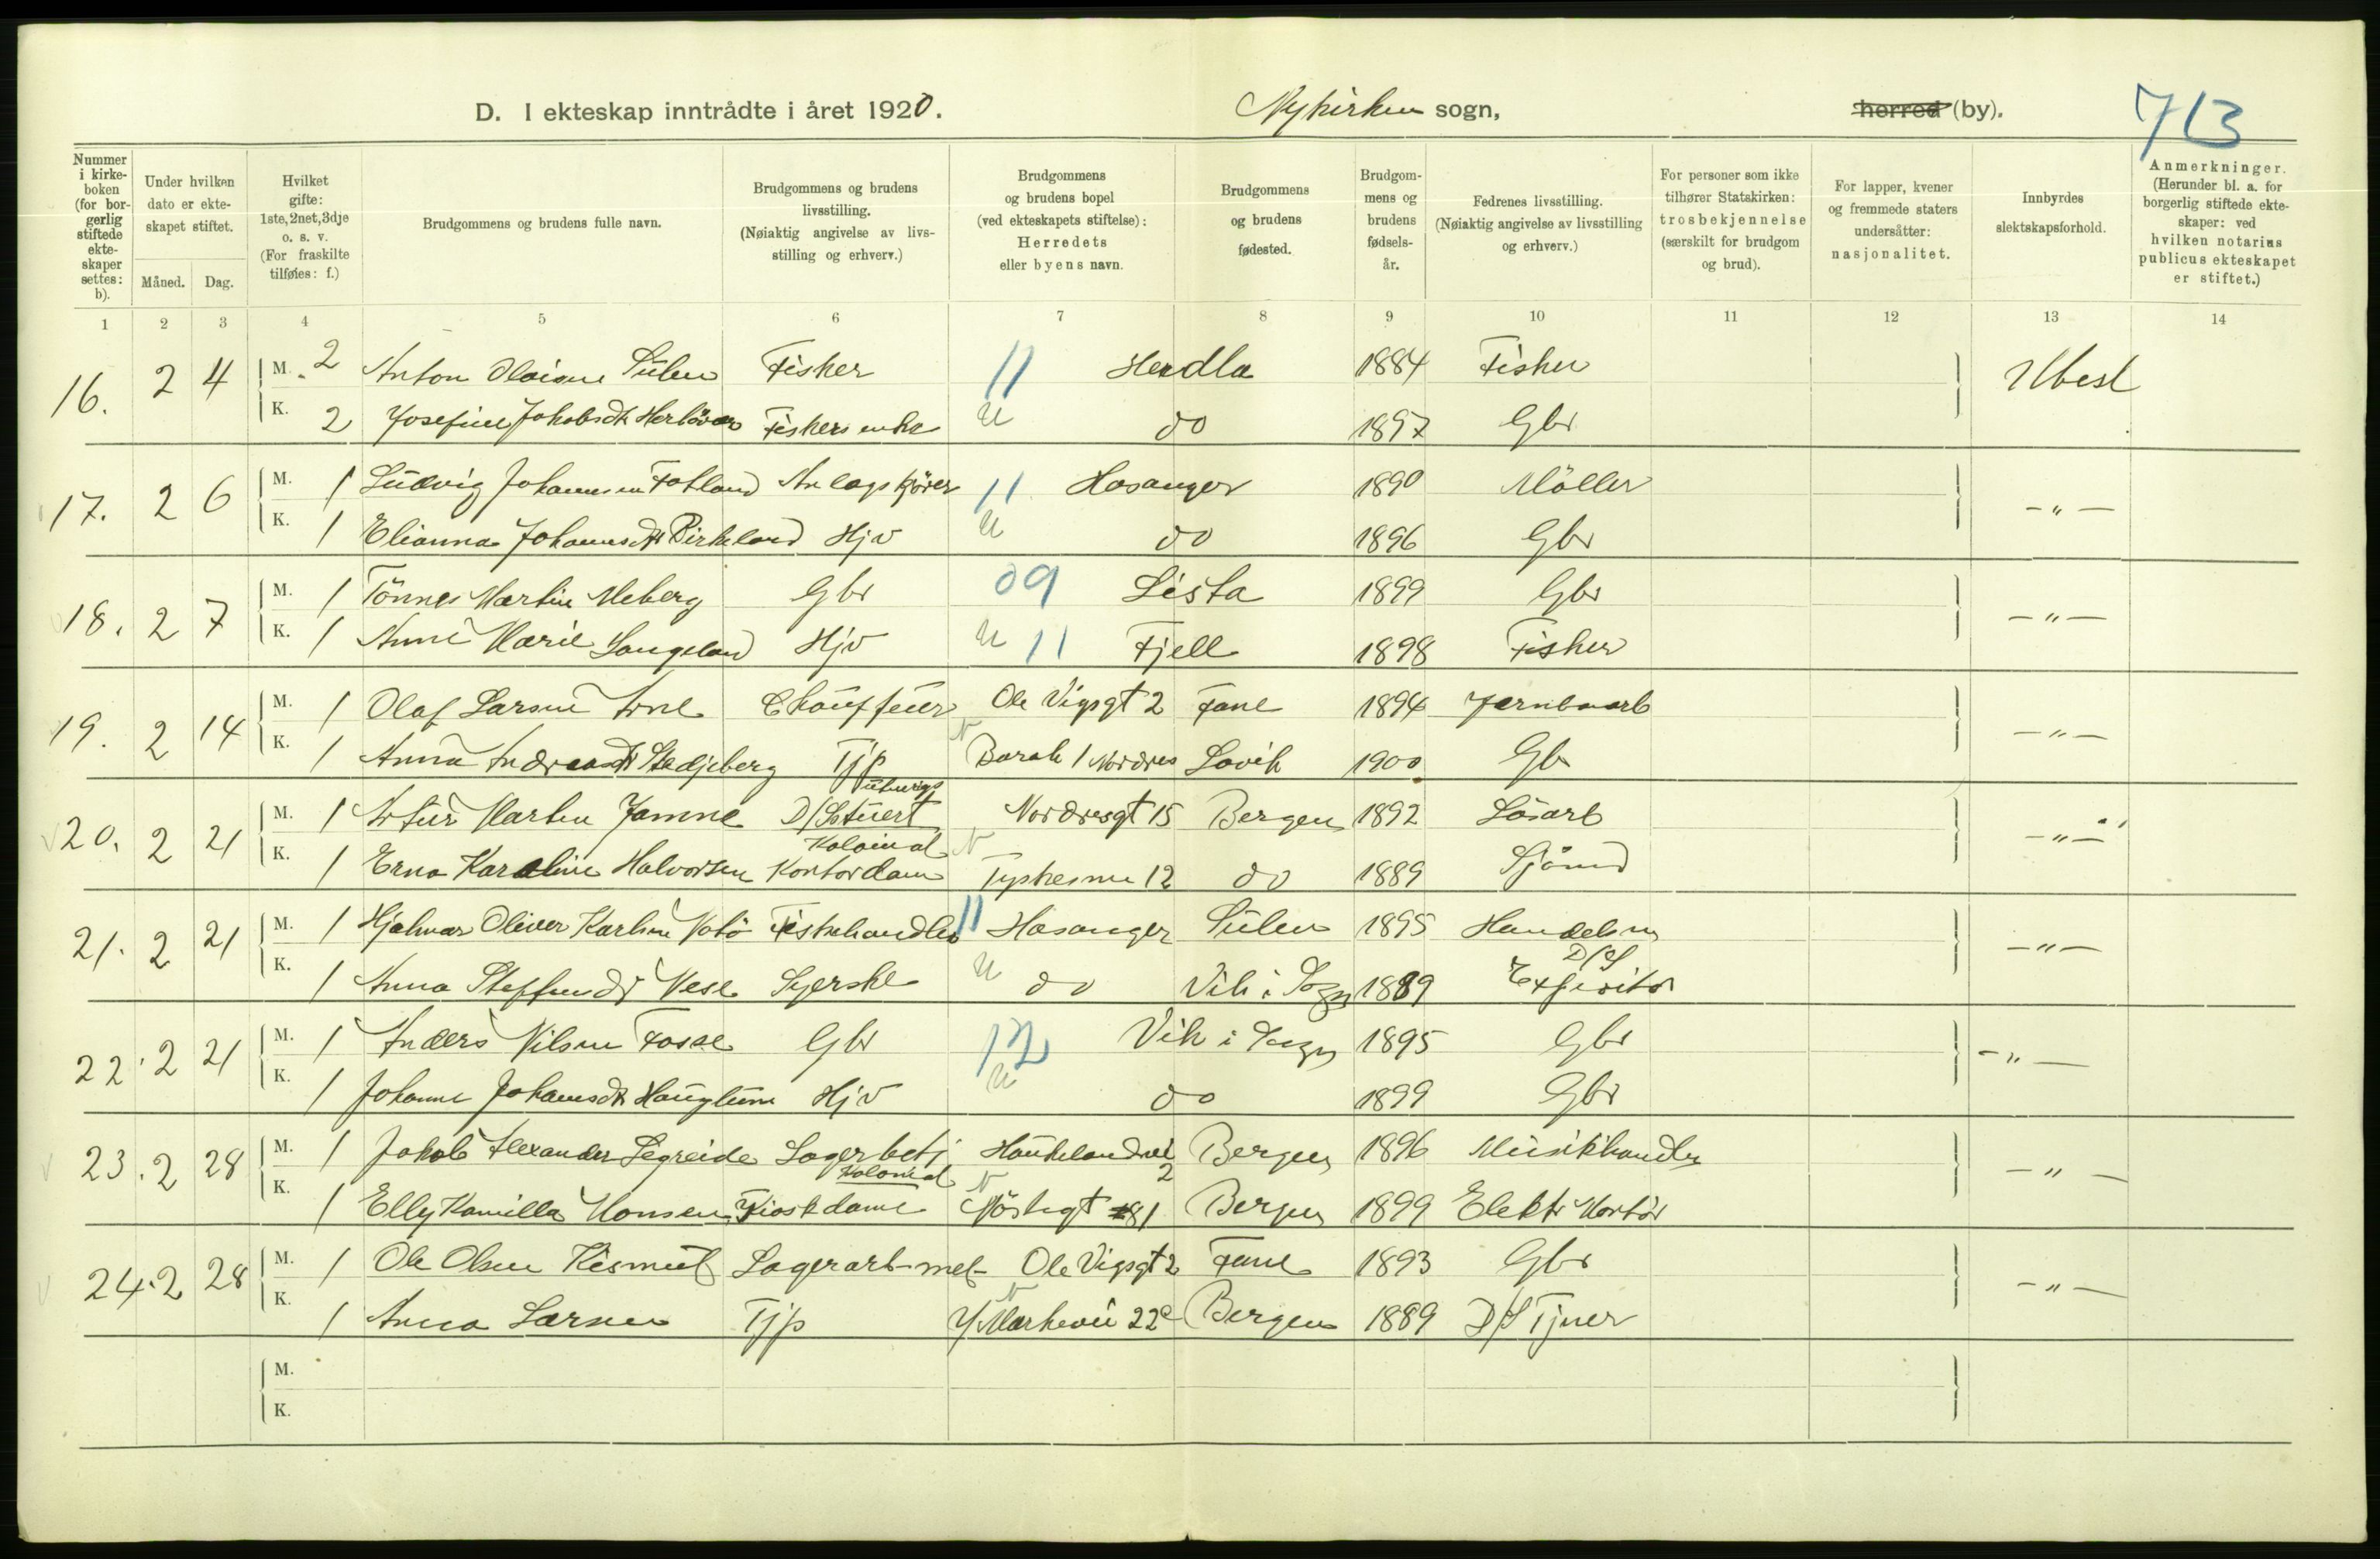 D. I ekteskap inntrådte i året 1920. Nykirken sogn, herred (by). 713
Nummer i kirke-boken (for bor-gerlig stiftede ekte-skaper settes: b).
Under hvilken dato er ekte-skapet stiftet.
Måned. Dag.
Hvilket gifte: 1ste, 2net, 3dje o. s. v. (For fraskilte tilføies: f.)
Brudgommens og brudens fulle navn.
Brudgommens og brudens livsstilling. (Nøiaktig angivelse av livs-stilling og erhverv.)
Brudgommens og brudens bopel (ved ekteskapets stiftelse): Herredets eller byens navn.
Brudgommens og brudens fødested.
Brudgom-mens og brudens fødsels-år.
Fedrenes livsstilling. (Nøiaktig angivelse av livsstilling og erhverv.)
For personer som ikke tilhører Statskirken: trosbekjennelse (særskilt for brudgom og brud).
For lapper, kvener og fremmede staters undersåtter: nasjonalitet.
Innbyrdes slektskapsforhold.
Anmerkninger. (Herunder bl. a. for borgerlig stiftede ekte-skaper: ved hvilken notarius publicus ekteskapet er stiftet.)
1 2 3 4 5 6 7 8 9 10 11 12 13 14
16. 2 4 M. 2 Anton Sulen Fisker 11 Herdla 1884 Fisker Ubesl
K. 2 Josefine Jakobsdtr Fiskers enke U do 1897 Gbr
17. 2 6 M. 1 Ludvig Johannesen Fotland Anlagskjörer 11 Hosanger 1890 Möller - " -
K. 1 Elianna Johannesdtr Birkeland Hjv U do 1896 Gbr
18. 2 7 M. 1 Tönnes Martin Meberg Gbr 09 Lista 1899 Gbr - " -
K. 1 Anne Marie Langeland Hjv U 11 Fjell 1898 Fisker
19. 2 14 M. 1 Olaf Larsen Chauffeur Ole Vigsgt 2 Fane 1894 Jernbarb - " -
K. 1 Anna Andreasdtr Stedjeberg Tjp Barak 1 Nordres Lavik 1900 Gbr
20. 2 21 M. 1 Artur Martin Jamne D/S Stuert Nordresgt 15 Bergen 1892 Lösarb - " -
K. 1 Erna Karoline Halvorsen Kolonial Kontordame 12 do 1889 Sjömd
21. 2 21 M. 1 Hjalmar Oliver Karlsen Fiskehandler 11 Hosanger Sulen 1895 Handelsm - " -
K. 1 Anna Steffensdtr Vese Syerske U do Vik i Sogn 1889 D/S Expeditör
22. 2 21 M. 1 Anders Nilsen Fosse Gbr 12 Vik i Sogn 1895 Gbr - " -
K. 1 Johanne Johannesdtr Hauglum Hjv U do 1899 Gbr
23. 2 28 M. 1 Jakob Alexander Legreide Lagerbetj Haukelandsvei 2 Bergen 1896 Musikhandler - " -
K. 1 Elly Kamilla Monsen Kolonial Kioskdame Nöstegt 81 Bergen 1899 Elektr Montör
24. 2 28 M. 1 Ole Olsen Kismul Lagerarb mel Ole Vigsgt 2 Fane 1893 Gbr - " -
K. 1 Anna Larsen Tjp Y Markevei 22c Bergen 1889 D/S Tjner
M.
K.